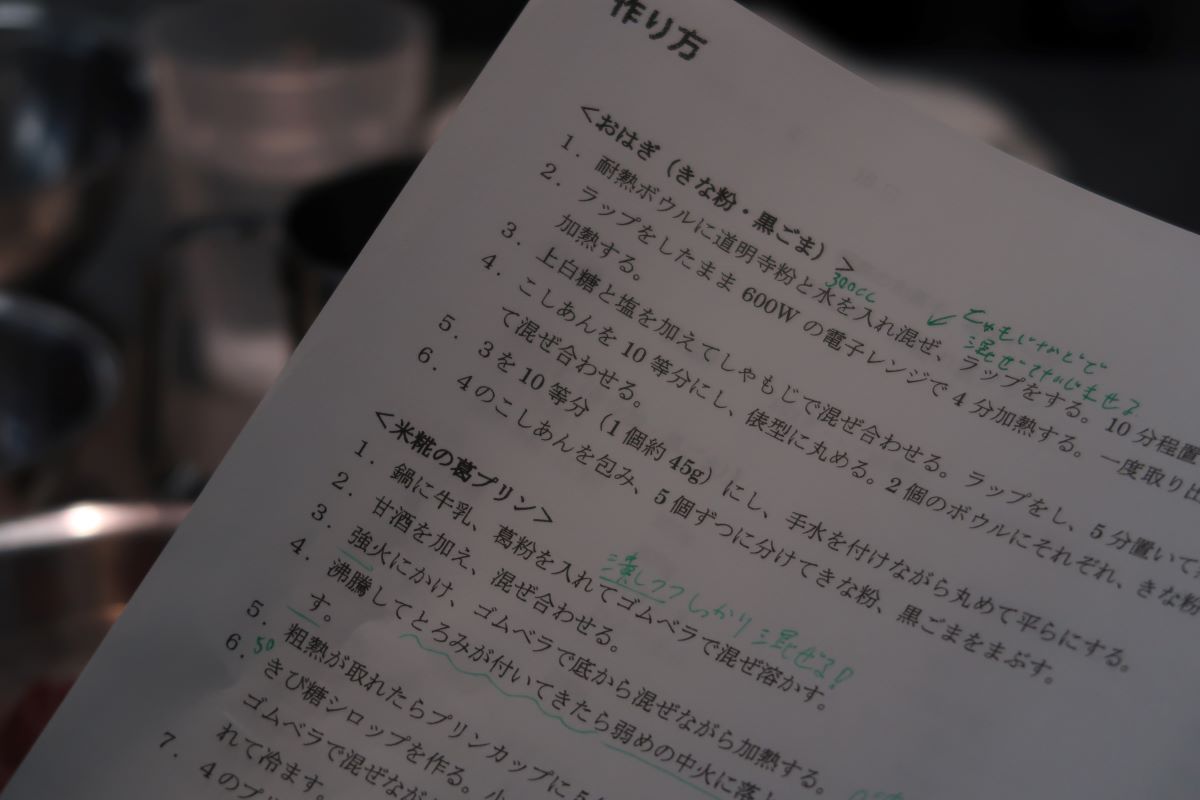 作り方
<おはぎ（きな粉・黒ごま）>
1. 耐熱ボウルに道明寺粉と水を入れ混ぜ、ラップをする。10 分程置
300cc
↙
混ぜ
2. ラップをしたまま 600W の電子レンジで 4 分加熱する。一度取り出
加熱する。
3. 上白糖と塩を加えてしゃもじで混ぜ合わせる。ラップをし、5 分置いて
4. こしあんを 10 等分にし、俵型に丸める。2 個のボウルにそれぞれ、きな粉
て混ぜ合わせる。
5. 3 を 10 等分（1 個約 45g）にし、手水を付けながら丸めて平らにする。
6. 4 のこしあんを包み、5 個ずつに分けてきな粉、黒ごまをまぶす。
<米糀の葛プリン>
1. 鍋に牛乳、葛粉を入れてゴムベラで混ぜ溶かす。
潰しつつしっかり混ぜる!
2. 甘酒を加え、混ぜ合わせる。
3. 強火にかけ、ゴムベラで底から混ぜながら加熱する。
4. 沸騰してとろみが付いてきたら弱めの中火に落
す。
5. 粗熱が取れたらプリンカップに 5
50
6. きび糖シロップを作る。小
ゴムベラで混ぜなが
れて冷ます。
7. 4 のプ